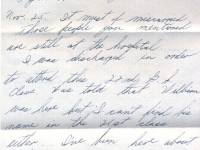 Nov. 29. St, most of
those people you mentioned
are still at the hospital
I was discharged in order
to attend this, 22nd
Class was told that William
was here but I can't find his
name in the 21st class
either. I've been here about